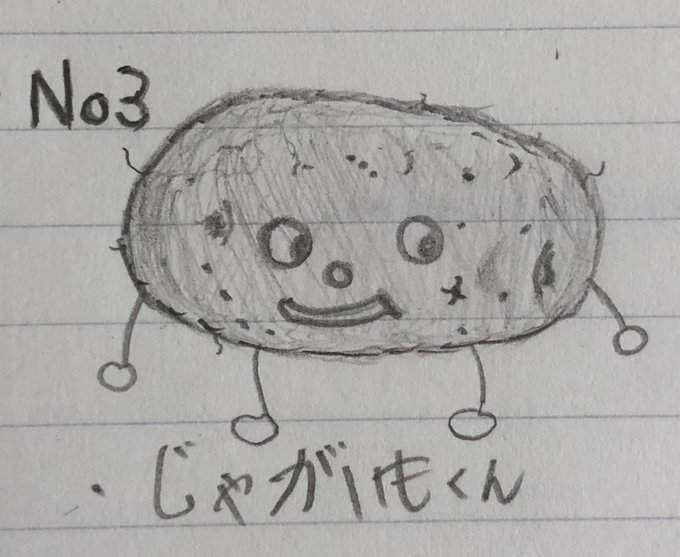 No3
・じゃがいもくん